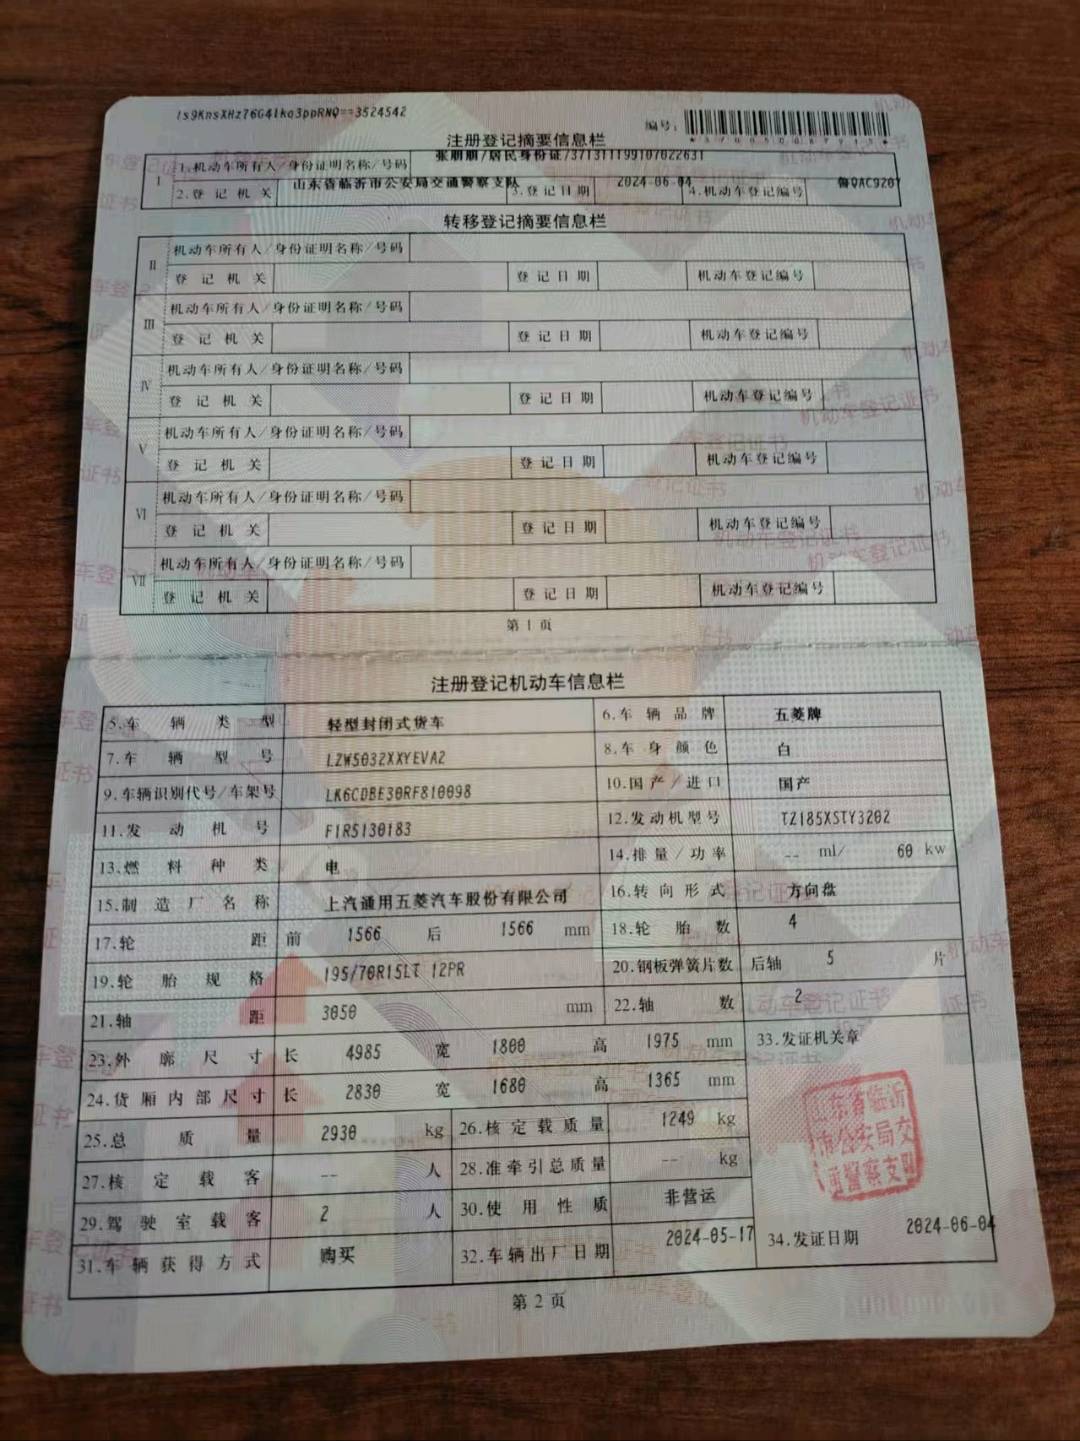 1s9KnsXHz76G41ko3ppRNQ==3524542
编号:
注册登记摘要信息栏
I 1.机动车所有人/身份证明名称/号码 张朋朋/居民身份证/371311199107022631
2.登记机关 山东省临沂市公安局交通警察支队 3.登记日期 2024-06-04 4.机动车登记编号 鲁QAC9207
转移登记摘要信息栏
II 机动车所有人/身份证明名称/号码
登记机关 登记日期 机动车登记编号
III 机动车所有人/身份证明名称/号码
登记机关 登记日期 机动车登记编号
IV 机动车所有人/身份证明名称/号码
登记机关 登记日期 机动车登记编号
V 机动车所有人/身份证明名称/号码
登记机关 登记日期 机动车登记编号
VI 机动车所有人/身份证明名称/号码
登记机关 登记日期 机动车登记编号
VII 机动车所有人/身份证明名称/号码
登记机关 登记日期 机动车登记编号
第1页
注册登记机动车信息栏
5.车辆类型 轻型封闭式货车 6.车辆品牌 五菱牌
7.车辆型号 LZW5032XXYEVA2 8.车身颜色 白
9.车辆识别代号/车架号 LK6CDBE30RF810098 10.国产/进口 国产
11.发动机号 F1R5130183 12.发动机型号 TZ185XSTY3202
13.燃料种类 电 14.排量/功率 -- ml/ 60 kw
15.制造厂名称 上汽通用五菱汽车股份有限公司 16.转向形式 方向盘
17.轮距 前 1566 后 1566 mm 18.轮胎数 4
19.轮胎规格 195/70R15LT 12PR 20.钢板弹簧片数 后轴 5 片
21.轴距 3050 mm 22.轴数 2
23.外廓尺寸 长 4985 宽 1800 高 1975 mm 33.发证机关章
24.货厢内部尺寸 长 2830 宽 1680 高 1365 mm
25.总质量 2930 kg 26.核定载质量 1249 kg
山东省临沂市公安局交通警察支队
27.核定载客 -- 人 28.准牵引总质量 -- kg
29.驾驶室载客 2 人 30.使用性质 非营运
31.车辆获得方式 购买 32.车辆出厂日期 2024-05-17 34.发证日期 2024-06-04
第2页